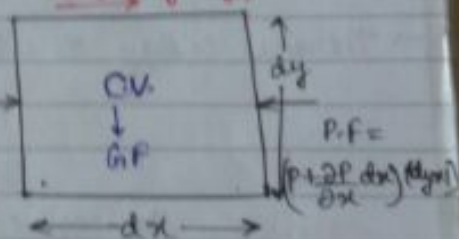 C.V.
↓
G.F
dy
P.F =
(P + ∂P/∂x dx)(dy×1)
dx